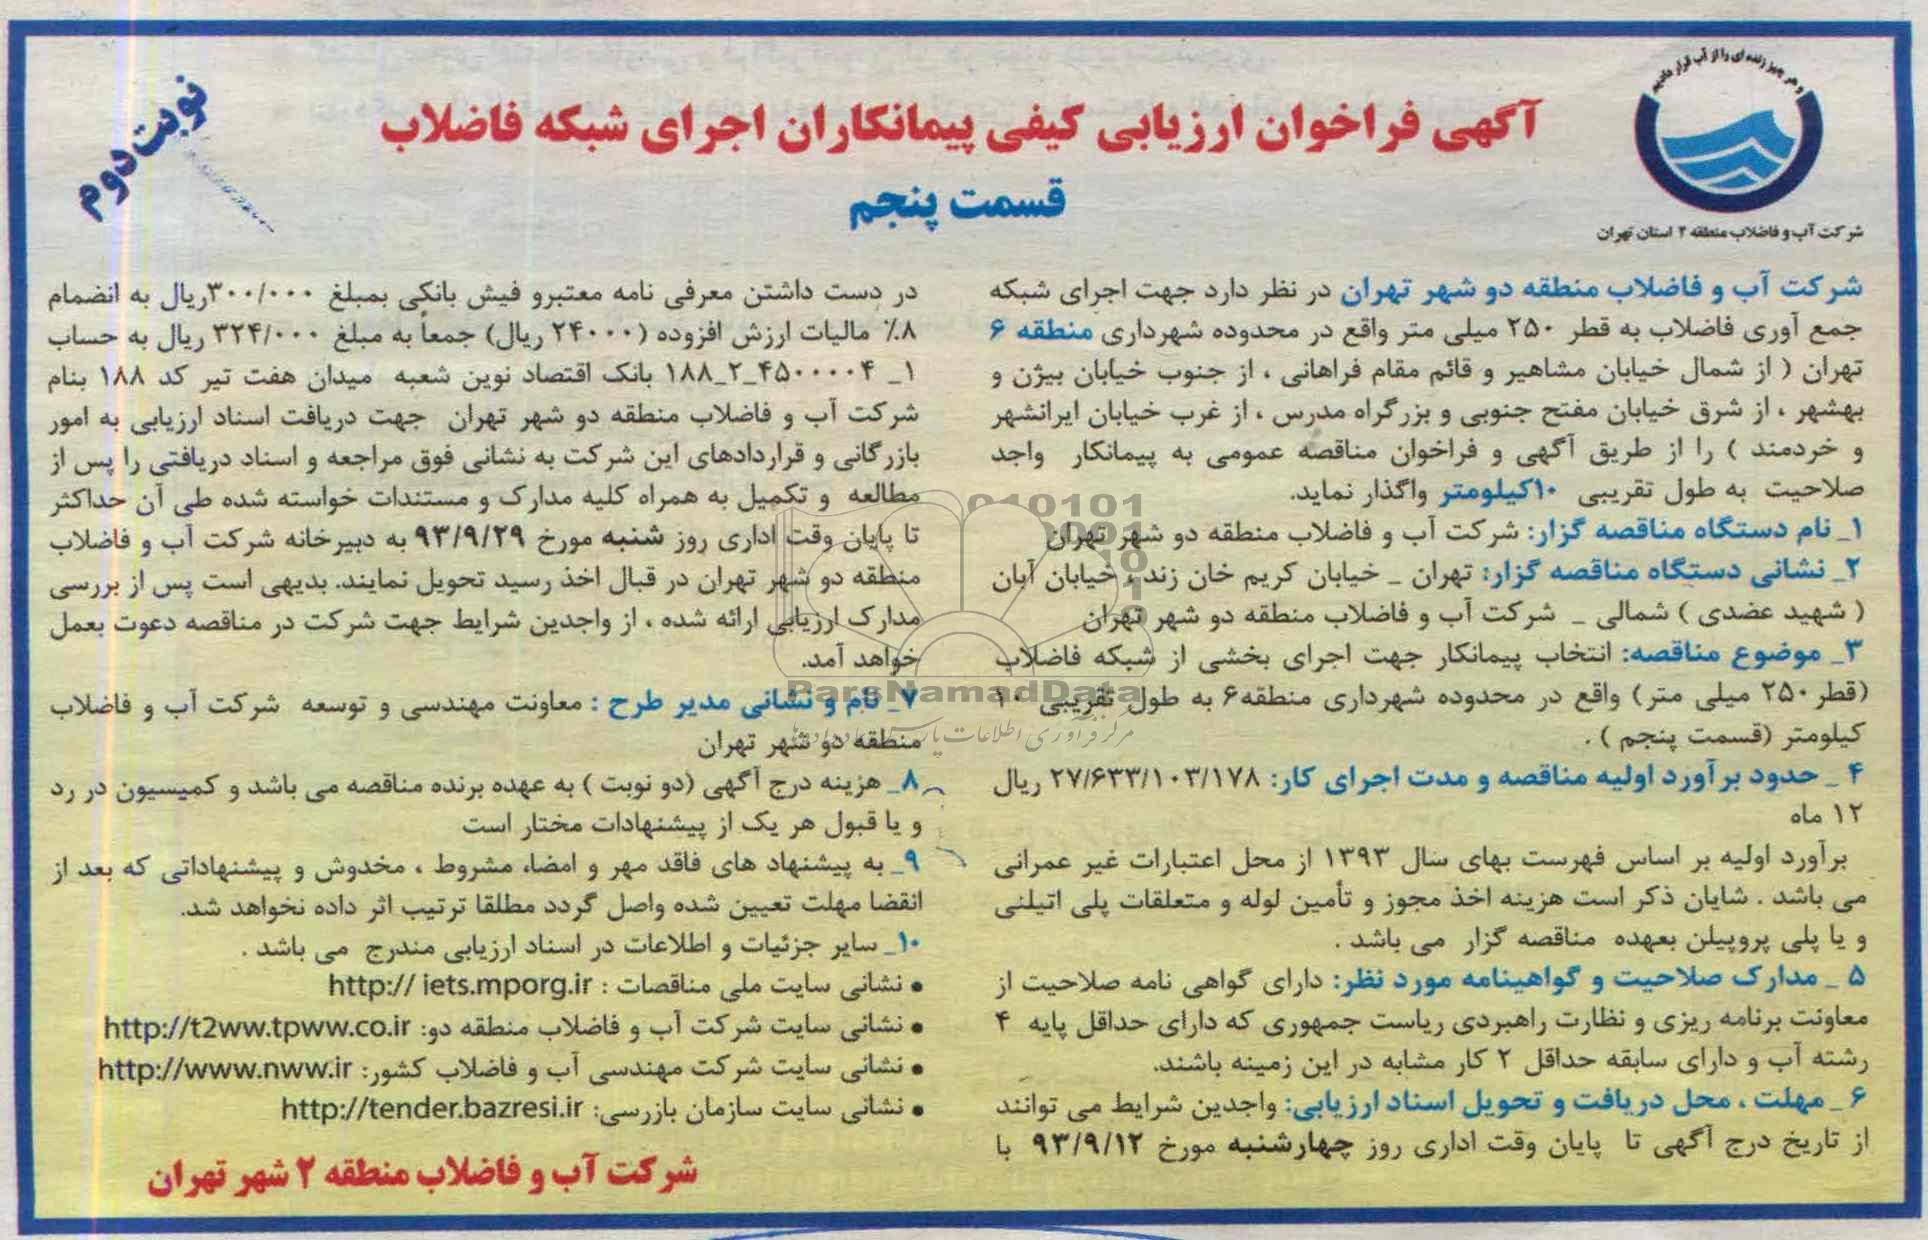 و هر چیز زنده ای را از آب قرار دادیم
شرکت آب و فاضلاب منطقه ۲ استان تهران
نوبت دوم
آگهی فراخوان ارزیابی کیفی پیمانکاران اجرای شبکه فاضلاب
قسمت پنجم
شرکت آب و فاضلاب منطقه دو شهر تهران در نظر دارد جهت اجرای شبکه
جمع آوری فاضلاب به قطر ۲۵۰ میلی متر واقع در محدوده شهرداری منطقه ۶
تهران ( از شمال خیابان مشاهیر و قائم مقام فراهانی ، از جنوب خیابان بیژن و
بهشهر ، از شرق خیابان مفتح جنوبی و بزرگراه مدرس ، از غرب خیابان ایرانشهر
و خردمند ) را از طریق آگهی و فراخوان مناقصه عمومی به پیمانکار واجد
صلاحیت به طول تقریبی ۱۰کیلومتر واگذار نماید.
۱_ نام دستگاه مناقصه گزار: شرکت آب و فاضلاب منطقه دو شهر تهران
۲_ نشانی دستگاه مناقصه گزار: تهران _ خیابان کریم خان زند ، خیابان آبان
( شهید عضدی ) شمالی _ شرکت آب و فاضلاب منطقه دو شهر تهران
۳_ موضوع مناقصه: انتخاب پیمانکار جهت اجرای بخشی از شبکه فاضلاب
(قطر ۲۵۰ میلی متر) واقع در محدوده شهرداری منطقه۶ به طول تقریبی ۱۰
کیلومتر (قسمت پنجم ) .
۴ _ حدود برآورد اولیه مناقصه و مدت اجرای کار: ۲۷/۶۳۳/۱۰۳/۱۷۸ ریال
۱۲ ماه
برآورد اولیه بر اساس فهرست بهای سال ۱۳۹۳ از محل اعتبارات غیر عمرانی
می باشد . شایان ذکر است هزینه اخذ مجوز و تأمین لوله و متعلقات پلی اتیلنی
و یا پلی پروپیلن بعهده مناقصه گزار می باشد .
۵ _ مدارک صلاحیت و گواهینامه مورد نظر: دارای گواهی نامه صلاحیت از
معاونت برنامه ریزی و نظارت راهبردی ریاست جمهوری که دارای حداقل پایه ۴
رشته آب و دارای سابقه حداقل ۲ کار مشابه در این زمینه باشند.
۶ _ مهلت ، محل دریافت و تحویل اسناد ارزیابی: واجدین شرایط می توانند
از تاریخ درج آگهی تا پایان وقت اداری روز چهارشنبه مورخ ۹۳/۹/۱۲ با
در دست داشتن معرفی نامه معتبرو فیش بانکی بمبلغ ۳۰۰/۰۰۰ریال به انضمام
۸٪ مالیات ارزش افزوده (۲۴۰۰۰ ریال) جمعاً به مبلغ ۳۲۴/۰۰۰ ریال به حساب
۱_ ۴۵۰۰۰۰۴_۲_۱۸۸ بانک اقتصاد نوین شعبه میدان هفت تیر کد ۱۸۸ بنام
شرکت آب و فاضلاب منطقه دو شهر تهران جهت دریافت اسناد ارزیابی به امور
بازرگانی و قراردادهای این شرکت به نشانی فوق مراجعه و اسناد دریافتی را پس از
مطالعه و تکمیل به همراه کلیه مدارک و مستندات خواسته شده طی آن حداکثر
تا پایان وقت اداری روز شنبه مورخ ۹۳/۹/۲۹ به دبیرخانه شرکت آب و فاضلاب
منطقه دو شهر تهران در قبال اخذ رسید تحویل نمایند. بدیهی است پس از بررسی
مدارک ارزیابی ارائه شده ، از واجدین شرایط جهت شرکت در مناقصه دعوت بعمل
خواهد آمد.
۷_ نام و نشانی مدیر طرح : معاونت مهندسی و توسعه شرکت آب و فاضلاب
منطقه دو شهر تهران
۸_ هزینه درج آگهی (دو نوبت ) به عهده برنده مناقصه می باشد و کمیسیون در رد
و یا قبول هر یک از پیشنهادات مختار است
۹_ به پیشنهاد های فاقد مهر و امضا، مشروط ، مخدوش و پیشنهاداتی که بعد از
انقضا مهلت تعیین شده واصل گردد مطلقا ترتیب اثر داده نخواهد شد.
۱۰_ سایر جزئیات و اطلاعات در اسناد ارزیابی مندرج می باشد .
• نشانی سایت ملی مناقصات : http:// iets.mporg.ir
• نشانی سایت شرکت آب و فاضلاب منطقه دو: http://t2ww.tpww.co.ir
• نشانی سایت شرکت مهندسی آب و فاضلاب کشور: http://www.nww.ir
• نشانی سایت سازمان بازرسی: http://tender.bazresi.ir
شرکت آب و فاضلاب منطقه ۲ شهر تهران
ParsNamadData